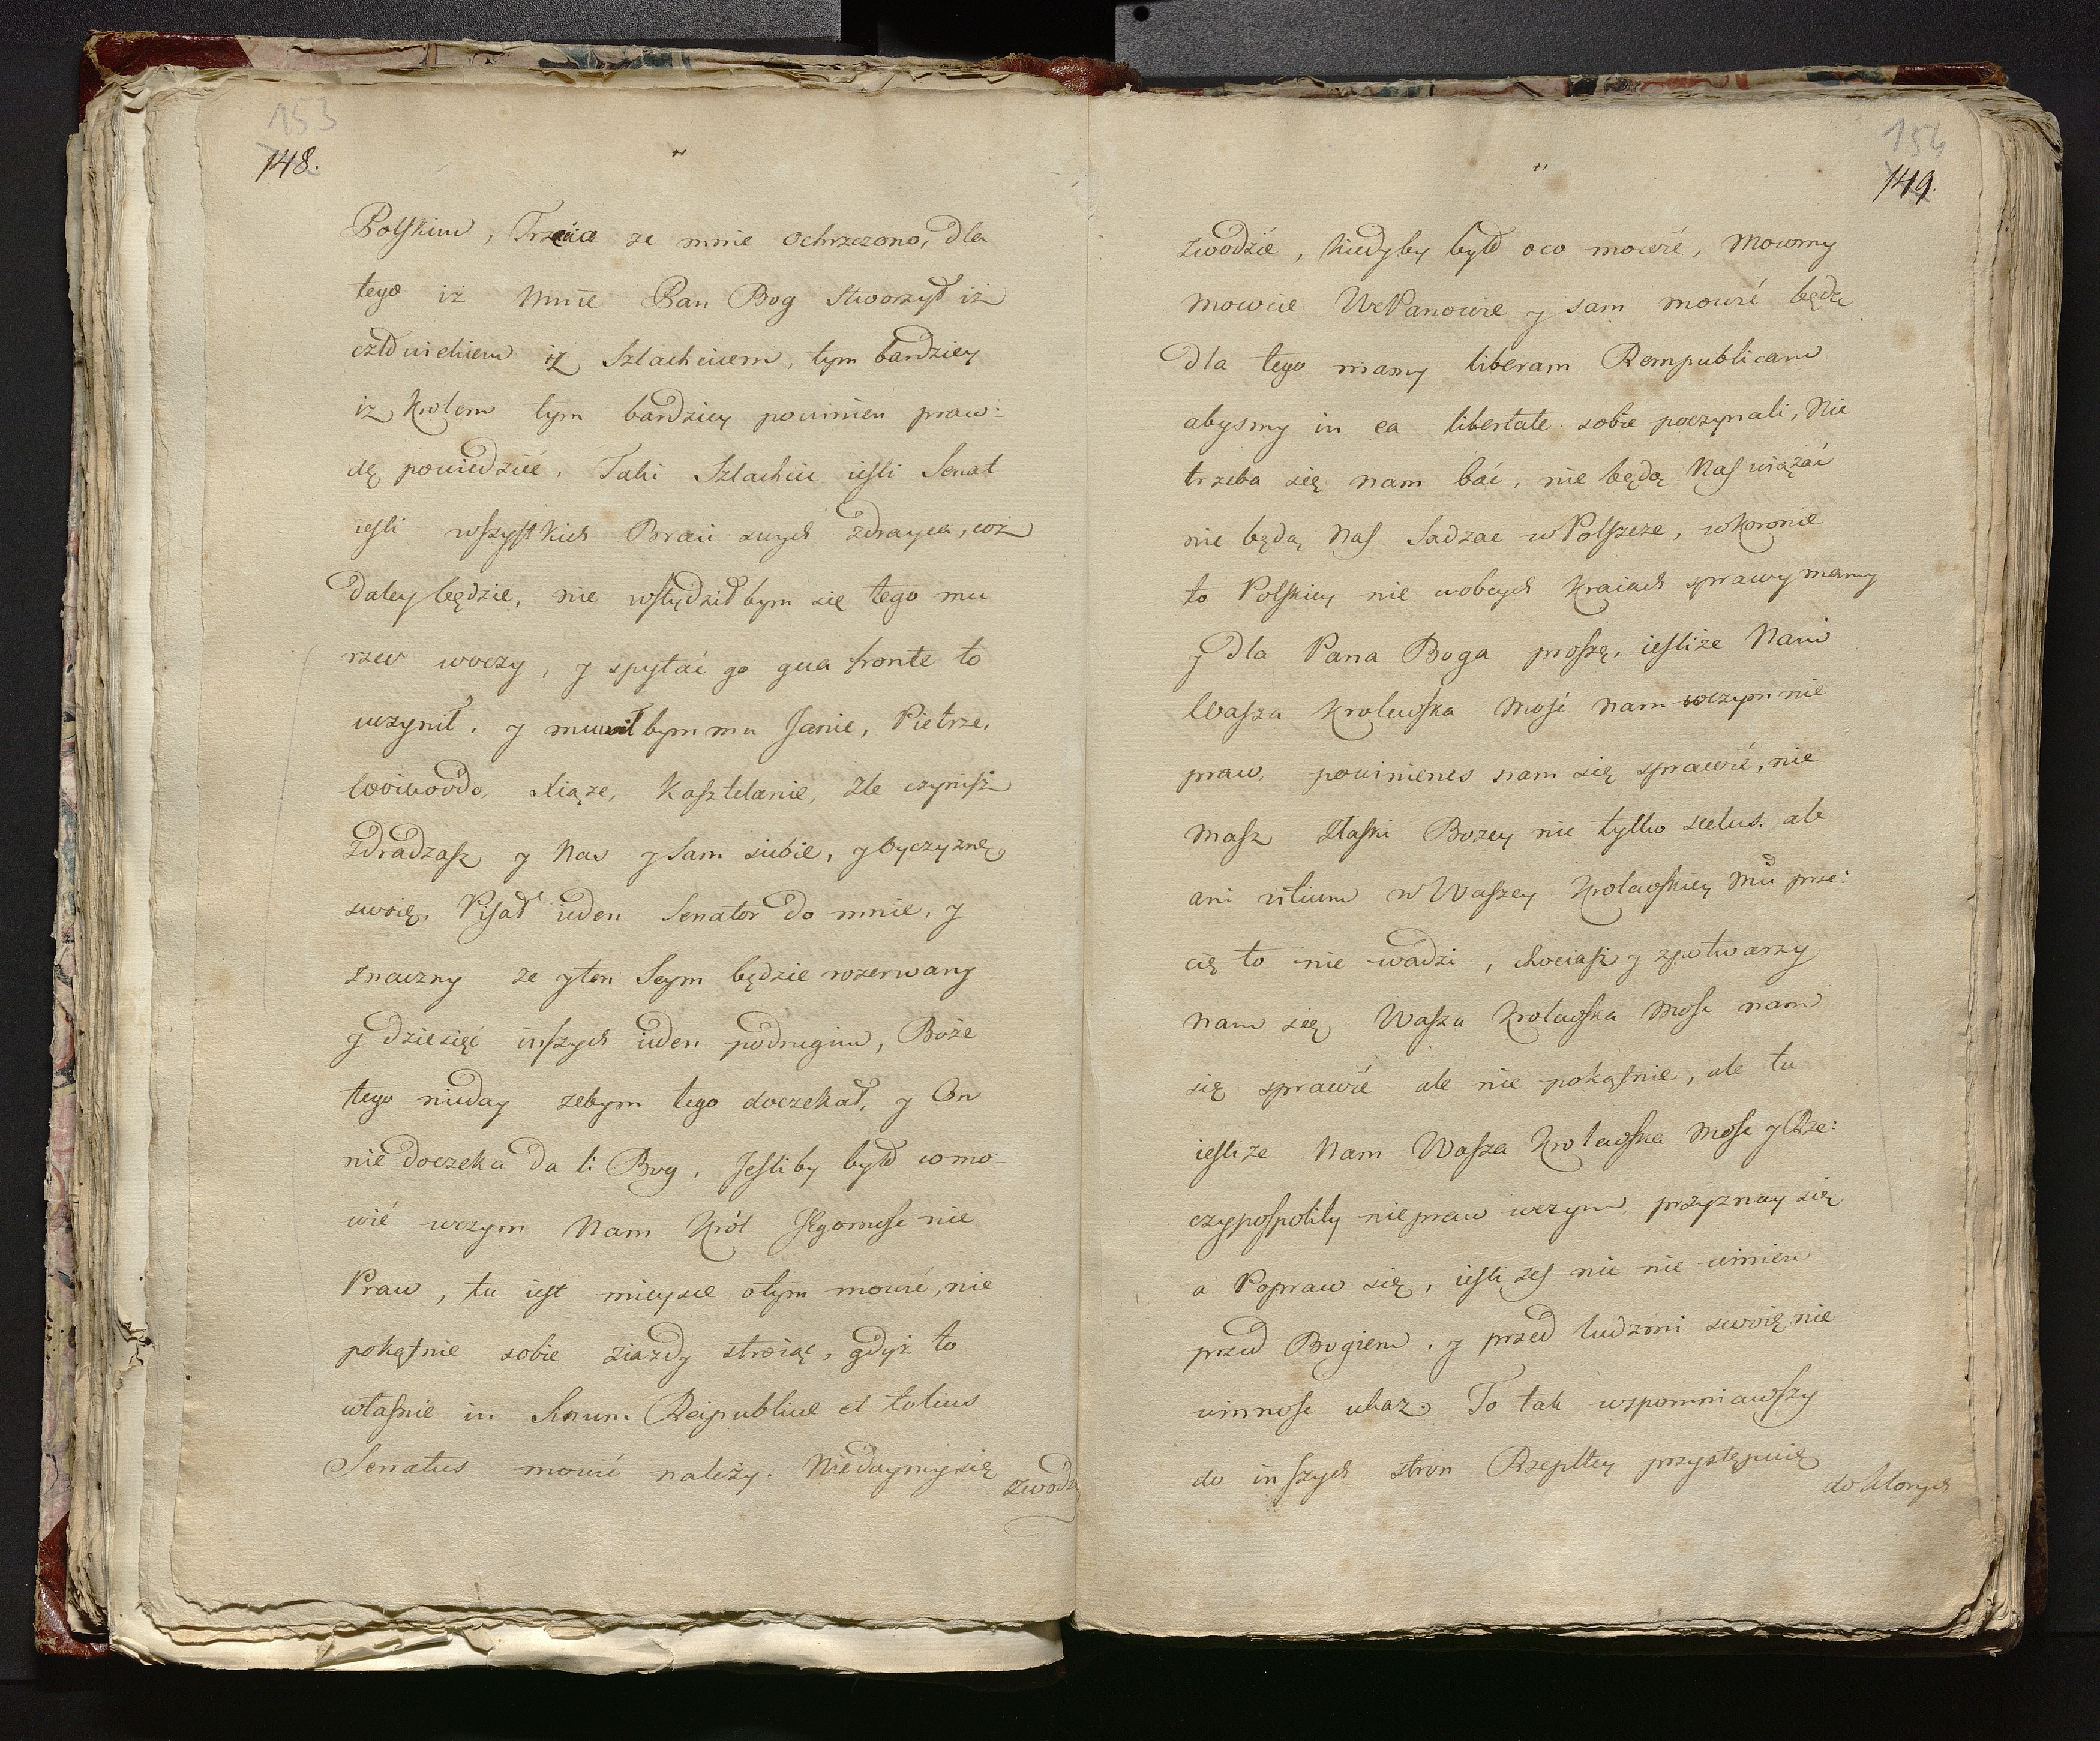 153
148.
Polskim, Trzecia ze mnie ochrzczono, dla
tego iż mnie Pan Bog stworzył iż
człowiekiem iż Szlachcicem, tym bardziey
iż Krolem tym bardziey powinien praw:
dę powiedzieć. Taki Szlachcic iesli Senat
iesli wszystkich Braci swych zdrayca, coż
daley będzie, nie wstydził bym się tego mu
rzec woczy, y spytać go qua fronte to
uczynił, y mowił bym mu Janie, Pietrze,
Woiwodo, Xiąże, Kasztelanie, źle czynisz
Zdradzasz y Nas y sam siebie, y Oyczyznę
swoię. Pisał ieden Senator do mnie, y
znaczny ze y ten Seym będzie rozerwany
y dziesięć inszych ieden podrugim, Boże
tego nieday zebym tego doczekał, y On
nie doczeka da li Bog. Jesliby było co mo-
wić wczym Nam Król Jegomosc nie
Praw, tu iest mieysce otym mowić, nie
pokątnie sobie ziazdy stroiąc, gdyż to
własnie in Sinum Reipublicae et totius
Senatus mowić należy. Niedaymy się
zwodz
154
149.
zwodzić, kiedyby było oco mowić, Mowmy
mowcie WcPanowie y sam mowić będę
dla tego mamy liberam Rempublicam
abysmy in ea libertate sobie poczynali, Nie
trzeba się nam bać, nie będą Nas wiązać
nie będą Nas Sadzac w Polszcze, w koronie
to Polskiey nie wobcych Kraiach sprawy mamy
y dla Pana Boga proszę, iesliże Nam
Wasza Krolewska Mość nam wczym nie
praw, powinienes nam się sprawić, nie
masz złaski Bozey nie tylko scelus. ale
ani vitium w Waszey Krolewskiey Mci prze:
cię to nie wadzi, chociasz y zpotwarzy
nam się Wasza Krolewska Mosc nam
się sprawić ale nie pokątnie, ale tu
iesliże Nam Wasza Krolewska Mosc y Rze:
czypospolity niepraw wczym, przyznay się
a Popraw się, iesli zes nic nie winien
przed Bogiem, y przed ludzmi swoię nie
winnosc ukaz. To tak wspomniawszy
do inszych stron Rzeplltey przystępuię
do ktorych